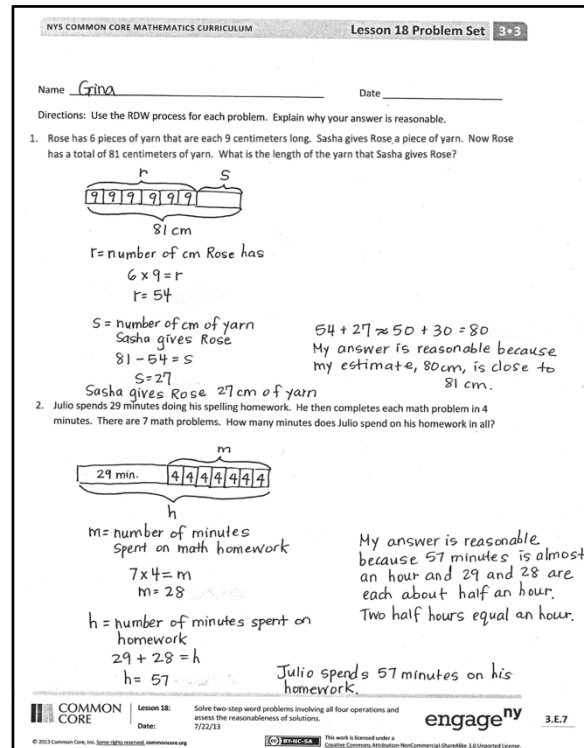 NYS COMMON CORE MATHEMATICS CURRICULUM
Lesson 18 Problem Set 3•3
Name Gina
Date
Directions: Use the RDW process for each problem. Explain why your answer is reasonable.
1. Rose has 6 pieces of yarn that are each 9 centimeters long. Sasha gives Rose a piece of yarn. Now Rose
has a total of 81 centimeters of yarn. What is the length of the yarn that Sasha gives Rose?
r s
9 9 9 9 9 9
81 cm
r= number of cm Rose has
6 × 9 = r
r= 54
S = number of cm of yarn
Sasha gives Rose
81 - 54 = s
S=27
Sasha gives Rose 27 cm of yarn
54 + 27 ≈ 50 + 30 = 80
My answer is reasonable because
my estimate, 80cm, is close to
81 cm.
2. Julio spends 29 minutes doing his spelling homework. He then completes each math problem in 4
minutes. There are 7 math problems. How many minutes does Julio spend on his homework in all?
m
29 min. 4 4 4 4 4 4 4
h
m= number of minutes
spent on math homework
7×4= m
m= 28
h = number of minutes spent on
homework
29 + 28 = h
h= 57
My answer is reasonable
because 57 minutes is almost
an hour and 29 and 28 are
each about half an hour.
Two half hours equal an hour.
Julio spends 57 minutes on his
homework.
COMMON
CORE
Lesson 18:
Date:
Solve two-step word problems involving all four operations and
assess the reasonableness of solutions.
7/22/13
engage ny
3.E.7
© 2013 Common Core, Inc. Some rights reserved. commoncore.org
(cc) BY-NC-SA
This work is licensed under a
Creative Commons Attribution-NonCommercial-ShareAlike 3.0 Unported License.